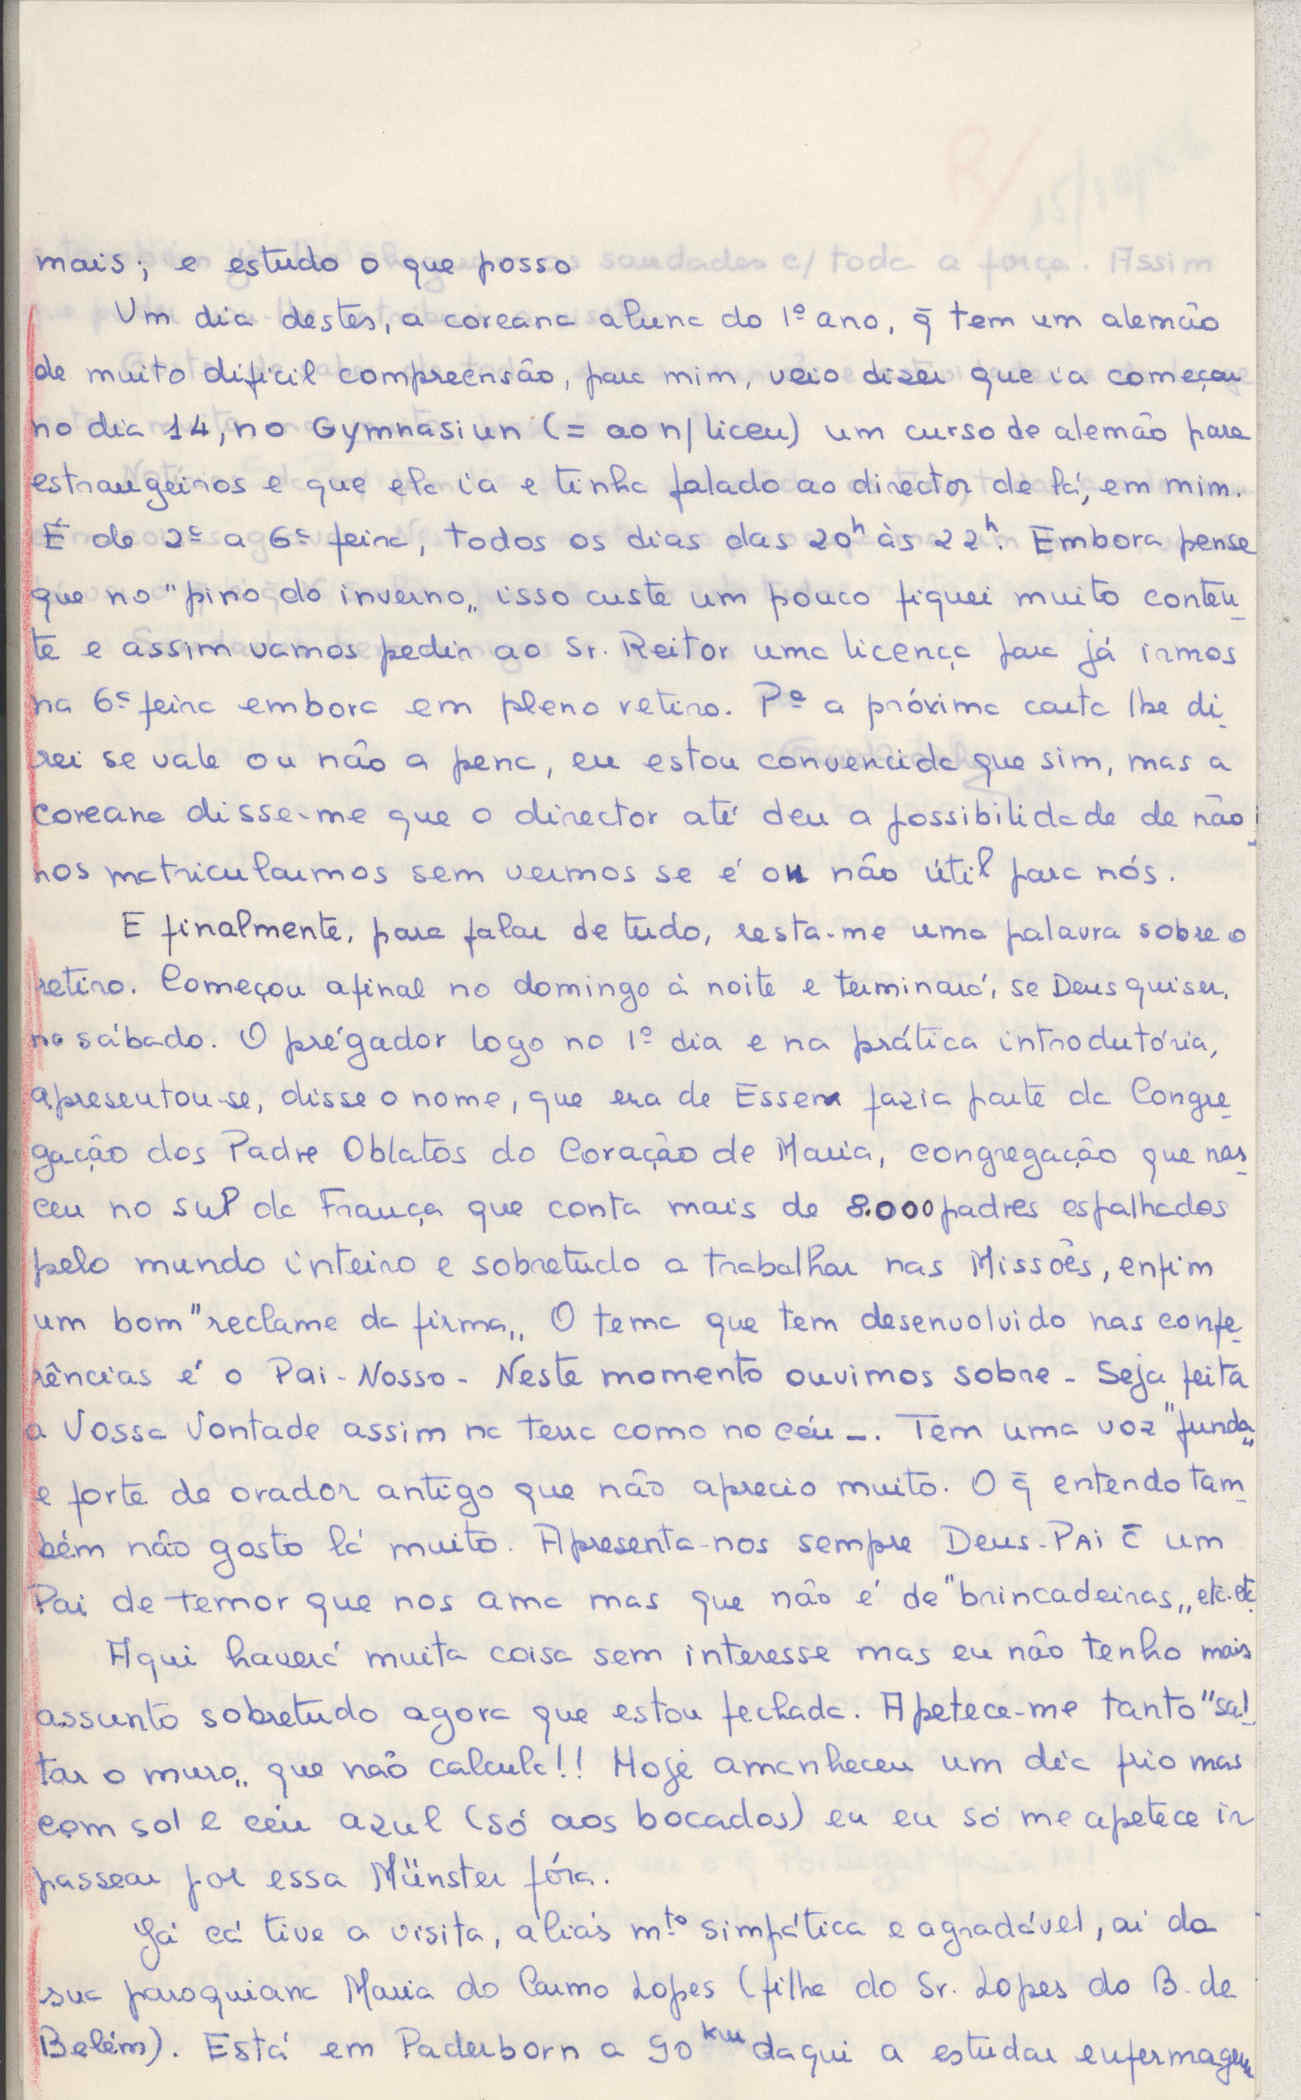 mais; e estudo o que posso
Um dia destes, a coreana aluna do 1º ano, q̃ tem um alemão
de muito dificil compreensão, para mim, veio dizer que ia começar
no dia 14, no Gymnasiun (= ao n/ liceu) um curso de alemão para
estrangeiros e que ela ia e tinha falado ao director de lá, em mim.
É de 2ª a 6ª feira, todos os dias das 20h às 22h. Embora pense
que no "pino do inverno„ isso custe um pouco fiquei muito conten-
te e assim vamos pedir ao Sr. Reitor uma licença para já irmos
na 6ª feira embora em pleno retiro. Pª a próxima carta lhe di-
rei se vale ou não a pena, eu estou convencida que sim, mas a
coreana disse-me que o director até deu a possibilidade de não
nos matricularmos sem vermos se é ou não útil para nós.
E finalmente, para falar de tudo, resta-me uma palavra sobre o
retiro. Começou afinal no domingo à noite e terminará, se Deus quiser,
no sábado. O prégador logo no 1º dia e na prática introdutória,
apresentou-se, disse o nome, que era de Essen fazia parte da Congre-
gação dos Padre Oblatos do Coração de Maria, congregação que nas-
ceu no sul da França que conta mais de 8.000 padres espalhados
pelo mundo inteiro e sobretudo a trabalhar nas Missões, enfim
um bom "reclame da firma„ O tema que tem desenvolvido nas confe-
rências é o Pai-Nosso - Neste momento ouvimos sobre - Seja feita
a Vossa Vontade assim na terra como no céu -. Tem uma voz "funda„
e forte de orador antigo que não aprecio muito. O q̃ entendo tam-
bém não gosto lá muito. Apresenta-nos sempre Deus-PAi c̄ um
Pai de temor que nos ama mas que não é de "brincadeiras„ etc. etc
Aqui haverá muita coisa sem interesse mas eu não tenho mais
assunto sobretudo agora que estou fechada. Apetece-me tanto "sal-
tar o muro„ que não calcula!! Hoje amanheceu um dia frio mas
com sol e céu azul (só aos bocados) eu eu só me apetece ir
passear por essa Münster fóra.
Já cá tive a visita, aliás mto simpática e agradável, aí da
sua paroquiana Maria do Carmo Lopes (filha do Sr. Lopes do B. de
Belém). Está em Paderborn a 90 km daqui a estudar enfermagem